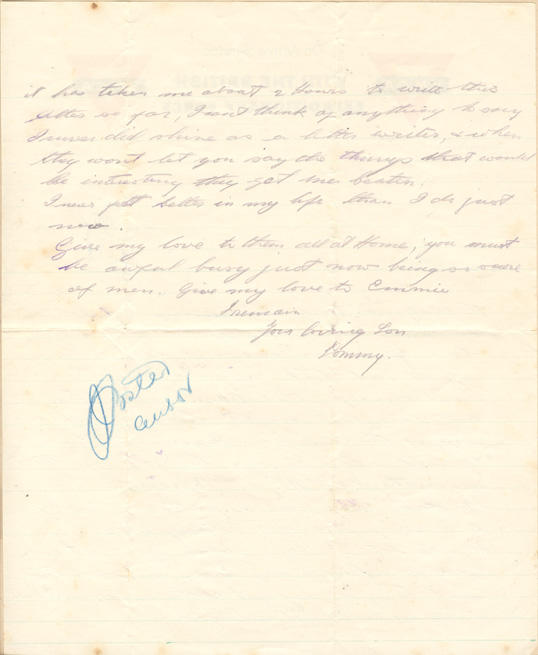 it has taken me about 2 Hours to write this
letter so far, I cant think of anything to say
I never did shine as a letter writer, & when
they wont let you say the things that would
be interesting they get me beaten.
I never felt better in my life than I do just
now.
Give my love to them all at Home, you must
be awful busy just now being so scarce
of men. Give my love to Emmie
I remain
Your loving Son
Tommy.
censor